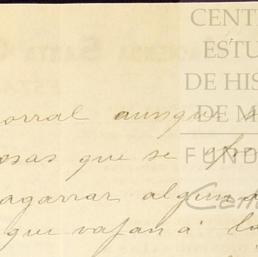 CENT
ESTU
DE HIS
DE M
FUND
orral aunque s
osas que se
agarrar algun
que vayan á la